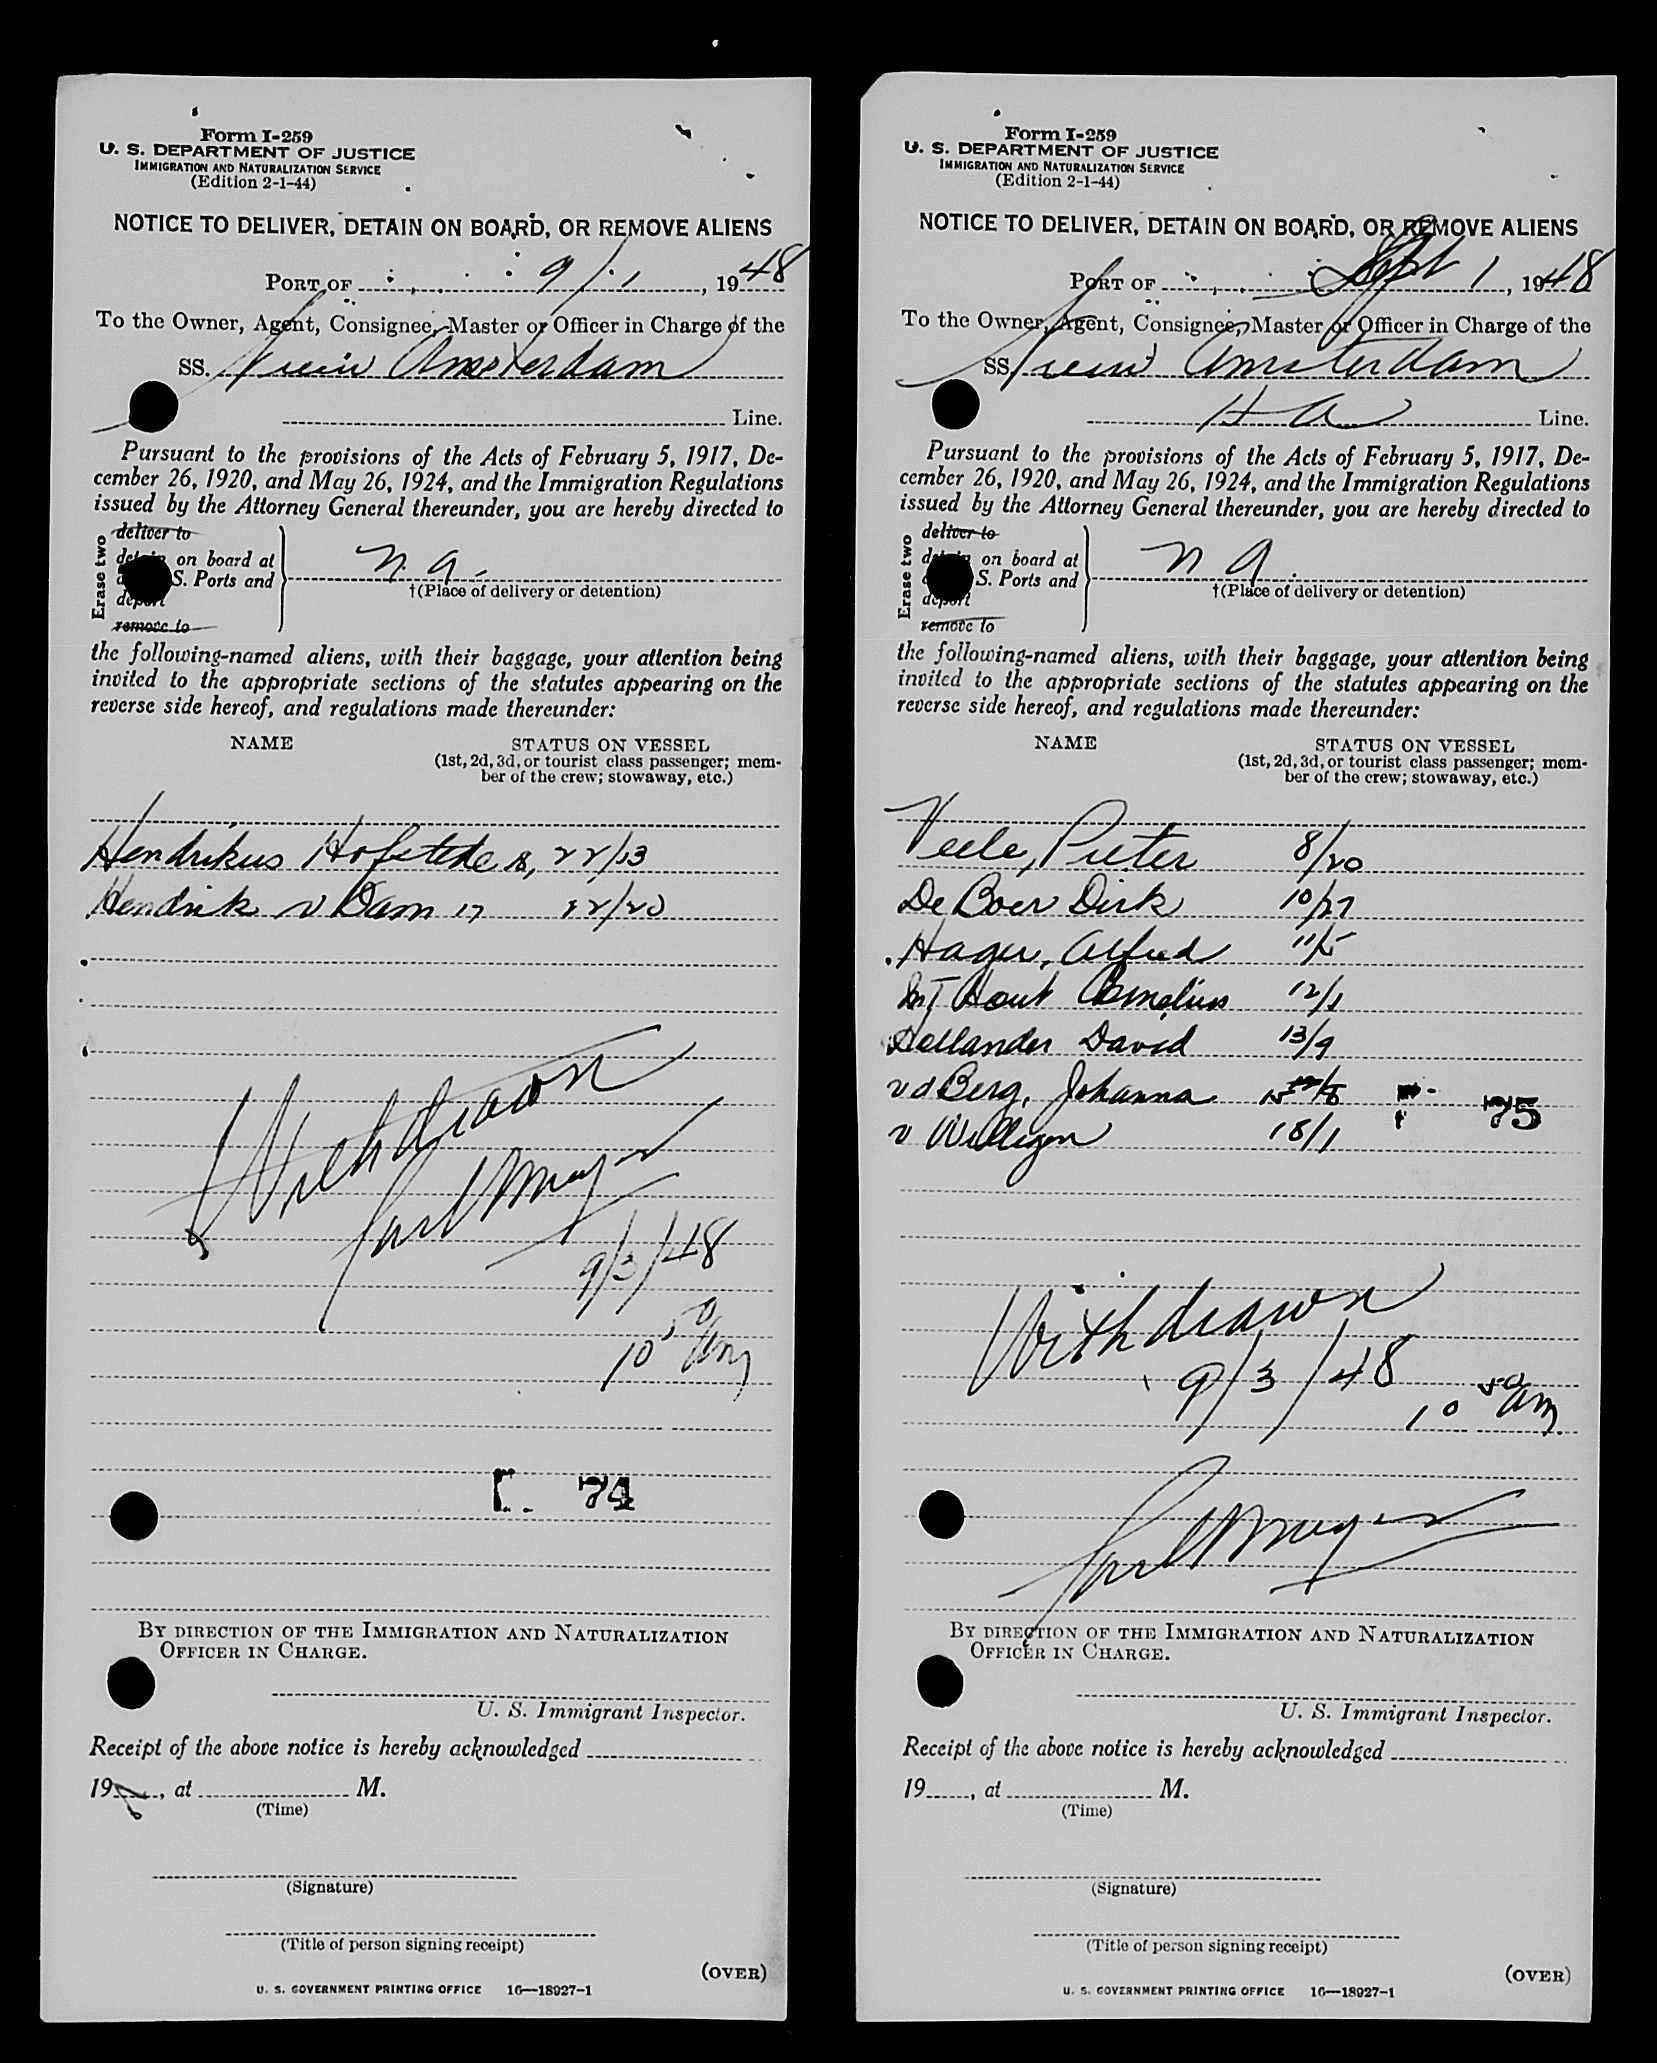 Form I-259
U. S. DEPARTMENT OF JUSTICE
IMMIGRATION AND NATURALIZATION SERVICE
(Edition 2-1-44)
NOTICE TO DELIVER, DETAIN ON BOARD, OR REMOVE ALIENS
PORT OF 9/1, 1948
To the Owner, Agent, Consignee, Master or Officer in Charge of the
SS. Nieuw Amsterdam
Line.
Pursuant to the provisions of the Acts of February 5, 1917, De-
cember 26, 1920, and May 26, 1924, and the Immigration Regulations
issued by the Attorney General thereunder, you are hereby directed to
Erase two
deliver to
on board at
S. Ports and
deport
remove to
n. a.
†(Place of delivery or detention)
the following-named aliens, with their baggage, your attention being
invited to the appropriate sections of the statutes appearing on the
reverse side hereof, and regulations made thereunder:
NAME STATUS ON VESSEL
(1st, 2d, 3d, or tourist class passenger; mem-
ber of the crew; stowaway, etc.)
Hendrikus Hofstede 18, 22/13
Hendrik v Dam 17 22/20
Withdrawn
9/3/48
10 50 am
74
BY DIRECTION OF THE IMMIGRATION AND NATURALIZATION
OFFICER IN CHARGE.
U. S. Immigrant Inspector.
Receipt of the above notice is hereby acknowledged
19, at M.
(Time)
(Signature)
(Title of person signing receipt)
(OVER)
U. S. GOVERNMENT PRINTING OFFICE 16—18927-1
Form I-259
U. S. DEPARTMENT OF JUSTICE
IMMIGRATION AND NATURALIZATION SERVICE
(Edition 2-1-44)
NOTICE TO DELIVER, DETAIN ON BOARD, OR REMOVE ALIENS
PORT OF Sept 1, 1948
To the Owner, Agent, Consignee, Master or Officer in Charge of the
SS Nieuw Amsterdam
H A Line.
Pursuant to the provisions of the Acts of February 5, 1917, De-
cember 26, 1920, and May 26, 1924, and the Immigration Regulations
issued by the Attorney General thereunder, you are hereby directed to
Erase two
deliver to
on board at
S. Ports and
deport
remove to
n a.
†(Place of delivery or detention)
the following-named aliens, with their baggage, your attention being
invited to the appropriate sections of the statutes appearing on the
reverse side hereof, and regulations made thereunder:
NAME STATUS ON VESSEL
(1st, 2d, 3d, or tourist class passenger; mem-
ber of the crew; stowaway, etc.)
Veele, Pieter 8/20
De Boer Dirk 10/27
Hager, Alfred 11/5
In T Hout Cornelius 12/1
Hollander David 13/9
v d Berg, Johanna 15/8
75
v Willigen 18/1
Withdrawn
9/3/48
10 50 am.
BY DIRECTION OF THE IMMIGRATION AND NATURALIZATION
OFFICER IN CHARGE.
U. S. Immigrant Inspector.
Receipt of the above notice is hereby acknowledged
19, at M.
(Time)
(Signature)
(Title of person signing receipt)
(OVER)
U. S. GOVERNMENT PRINTING OFFICE 16—18927-1